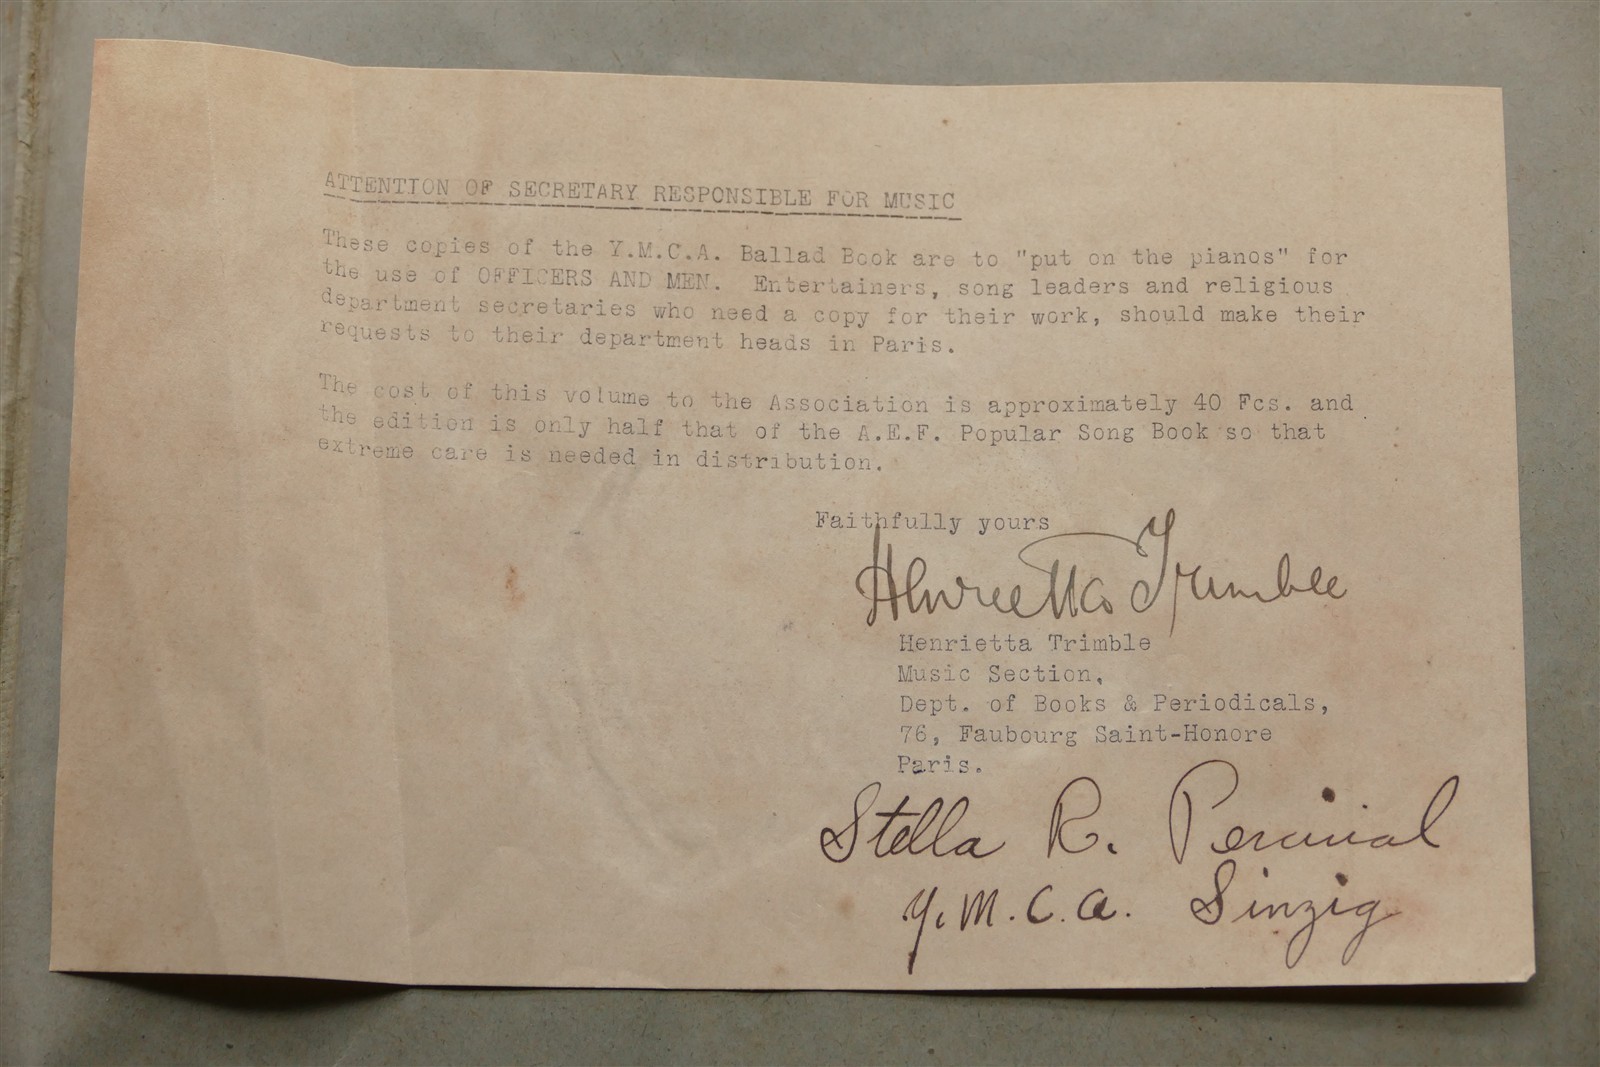 ATTENTION OF SECRETARY RESPONSIBLE FOR MUSIC
These copies of the Y.M.C.A. Ballad Book are to "put on the pianos" for
the use of OFFICERS AND MEN. Entertainers, song leaders and religious
department secretaries who need a copy for their work, should make their
requests to their department heads in Paris.
The cost of this volume to the Association is approximately 40 Fcs. and
the edition is only half that of the A.E.F. Popular Song Book so that
extreme care is needed in distribution.
Faithfully yours
Henrietta Trimble
Henrietta Trimble
Music Section,
Dept. of Books & Periodicals,
76, Faubourg Saint-Honore
Paris.
Stella R. Percival
Y.M.C.A. Sinzig